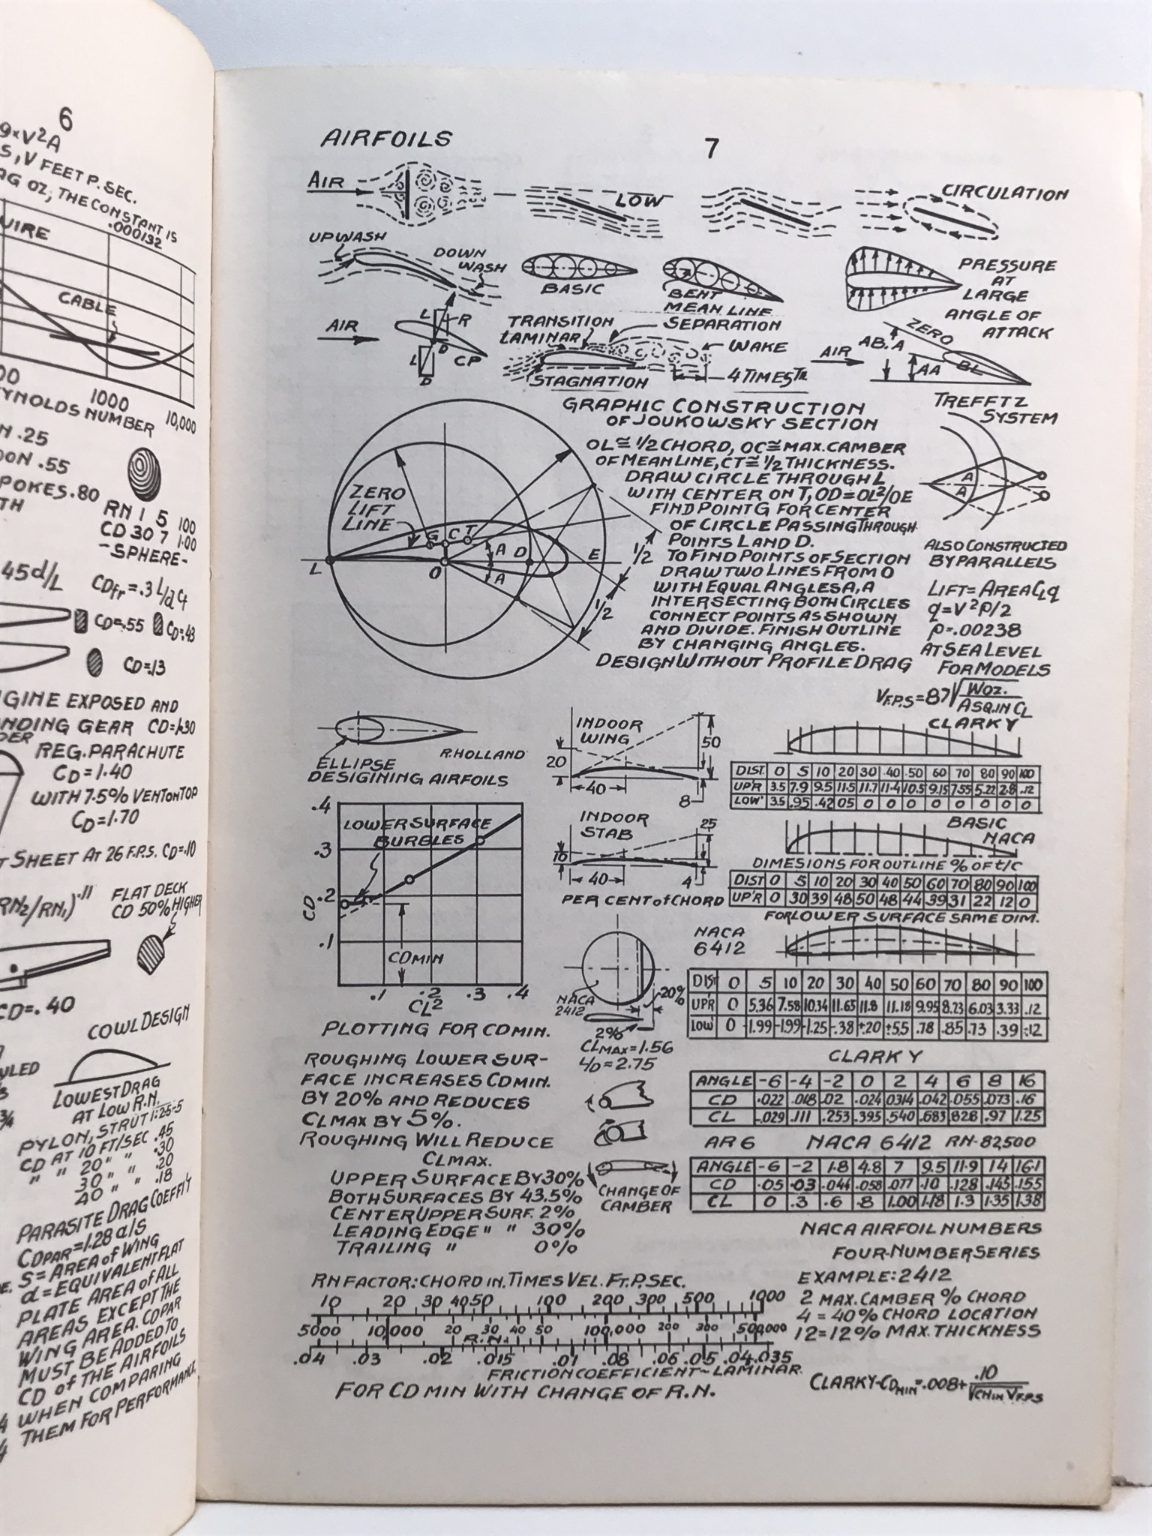 6
9×V²A
S, V FEET P. SEC.
AG OZ, THE CONSTANT IS
.000132
WIRE
CABLE
1000
10,000
REYNOLDS NUMBER
N .25
OON .55
SPOKES .80
RN 1 5 100
CD 30 7 1.00
-SPHERE-
45 d/L
CD=.55
CD=.13
ENGINE EXPOSED AND
LANDING GEAR CD=1.30
REG. PARACHUTE
CD=1.40
WITH 7.5% VENT ON TOP
CD=1.70
T SHEET AT 26 F.P.S. CD=.10
RN2/RN1).11
FLAT DECK
CD 50% HIGHER
CD=.40
COWL DESIGN
LOWEST DRAG
AT LOW R.N.
PYLON, STRUT 1:25-5
CD AT 10 FT/SEC .45
" " 20 " " .30
30 " " .20
40 " " .18
PARASITE DRAG COEFF'T
CDPAR=1.28 a/s
S=AREA of WING
a=EQUIVALENT FLAT
PLATE AREA of ALL
AREAS EXCEPT THE
WING AREA. CDPAR
MUST BE ADDED TO
CD of THE AIRFOILS
WHEN COMPARING
THEM FOR PERFORMANCE
AIRFOILS
7
AIR
LOW
CIRCULATION
UPWASH
DOWN
WASH
BASIC
BENT
MEAN LINE
PRESSURE
AT
LARGE
ANGLE OF
ATTACK
AIR
L
R
D
CP
L
D
TRANSITION
LAMINAR
SEPARATION
WAKE
STAGNATION
4 TIMES
AIR
ZERO
AB. A
AA
GRAPHIC CONSTRUCTION
OF JOUKOWSKY SECTION
TREFFTZ
SYSTEM
OL≅1/2 CHORD, OC≅MAX. CAMBER
OF MEAN LINE, CT≅1/2 THICKNESS.
DRAW CIRCLE THROUGH L
WITH CENTER ON T, OD=OL²/OE
FIND POINT G FOR CENTER
OF CIRCLE PASSING THROUGH
POINTS L AND D.
TO FIND POINTS OF SECTION
DRAW TWO LINES FROM O
WITH EQUAL ANGLES A, A
INTERSECTING BOTH CIRCLES
CONNECT POINTS AS SHOWN
AND DIVIDE. FINISH OUTLINE
BY CHANGING ANGLES.
DESIGN WITHOUT PROFILE DRAG
ZERO
LIFT
LINE
G C T
A
D
E
L
O
A
1/2
1/2
A
A
ALSO CONSTRUCTED
BY PARALLELS
LIFT=AREA CL q
q=V²ρ/2
ρ=.00238
AT SEA LEVEL
FOR MODELS
VF.P.S=87√WOZ./ASQ.IN CL
ELLIPSE
R. HOLLAND
DESIGINING AIRFOILS
INDOOR
WING
20
50
40
8
INDOOR
STAB
25
16
40
4
PER CENT of CHORD
CLARKY
DIST. 0 5 10 20 30 40 50 60 70 80 90 100
UP'R 3.5 7.9 9.5 11.5 11.7 11.4 10.5 9.15 7.55 5.22 2.8 .12
LOW' 3.5 .95 .42 05 0 0 0 0 0 0 0 0
BASIC
NACA
DIMESIONS FOR OUTLINE % OF t/C
DIST 0 5 10 20 30 40 50 60 70 80 90 100
UP'R 0 30 39 48 50 48 44 39 31 22 12 0
FOR LOWER SURFACE SAME DIM.
NACA
6412
DIST 0 5 10 20 30 40 50 60 70 80 90 100
UPR 0 5.36 7.58 10.34 11.65 11.8 11.18 9.95 8.23 6.03 3.33 .12
LOW 0 -1.99 -1.99 -1.25 -.38 +.20 +.55 .78 .85 .73 .39 -.12
LOWER SURFACE
BURBLES
.4
.3
.2
.1
CD
CDMIN
.1 .2 .3 .4
CL2
PLOTTING FOR CDMIN.
NACA
2412
20%
2%
CLMAX=1.56
L/D=2.75
ROUGHING LOWER SUR-
FACE INCREASES CDMIN.
BY 20% AND REDUCES
CLMAX BY 5%.
ROUGHING WILL REDUCE
CLMAX.
UPPER SURFACE BY 30%
BOTH SURFACES BY 43.5%
CENTER UPPER SURF. 2%
LEADING EDGE " " 30%
TRAILING " 0%
CHANGE OF
CAMBER
CLARKY
ANGLE -6 -4 -2 0 2 4 6 8 16
CD .022 .018 .02 .024 .0314 .042 .055 .073 .16
CL .029 .111 .253 .395 .540 .683 .828 .97 1.25
AR 6 NACA 6412 RN-82,500
ANGLE -6 -2 1.8 4.8 7 9.5 11.9 14 16.1
CD .05 .03 .046 .058 .077 .10 .128 .145 .155
CL 0 .3 .6 .8 1.00 1.18 1.3 1.35 1.38
NACA AIRFOIL NUMBERS
FOUR-NUMBER SERIES
EXAMPLE: 2412
2 MAX. CAMBER % CHORD
4 = 40% CHORD LOCATION
12=12% MAX. THICKNESS
RN FACTOR: CHORD IN. TIMES VEL. FT. P. SEC.
10 20 30 40 50 100 200 300 500 1000
5000 10,000 20 30 40 50 100,000 200 300 500,000
R.N.
.04 .03 .02 .015 .01 .08 .06 .05 .04 .035
FRICTION COEFFICIENT-LAMINAR
FOR CD MIN WITH CHANGE OF R.N.
CLARKY-CDMIN=.008+.10/√CHIN VF.P.S